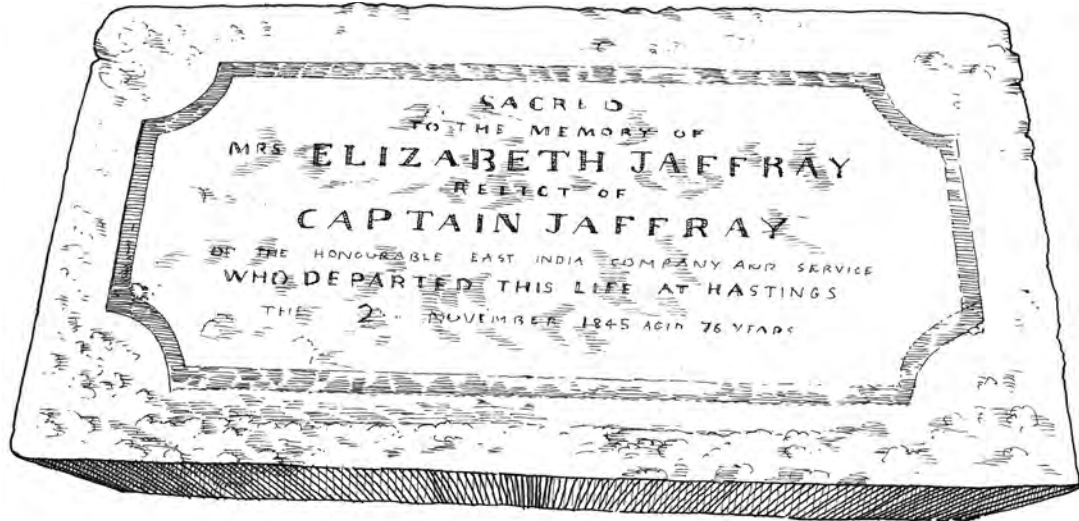 SACRED
TO THE MEMORY OF
MRS ELIZABETH JAFFRAY
RELICT OF
CAPTAIN JAFFRAY
OF THE HONOURABLE EAST INDIA COMPANY AND SERVICE
WHO DEPARTED THIS LIFE AT HASTINGS
THE 2 NOVEMBER 1845 AGED 76 YEARS